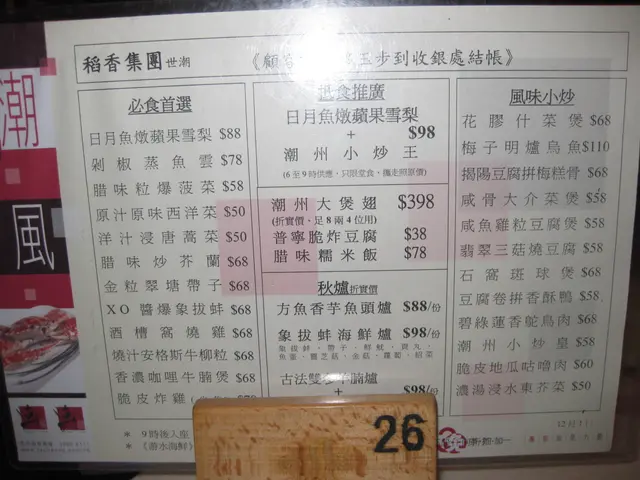 稻香集團世潮
《顧客 玉步到收銀處結帳》
潮
風
必食首選
日月魚燉蘋果雪梨 $88
剁椒蒸魚雲 $78
腊味粒爆菠菜 $58
原汁原味西洋菜 $50
洋汁浸唐蒿菜 $50
腊味炒芥蘭 $68
金粒翠塘帶子 $68
XO醬爆象拔蚌 $68
酒糟窩燒雞 $68
燒汁安格斯牛柳粒 $68
香濃咖哩牛腩煲 $68
脆皮炸雞
* 9時後入座
* 《游水海鮮》
抵食推廣
日月魚燉蘋果雪梨
+ $98
潮州小炒王
(6至9時供應，只限堂食，攜走照原價)
潮州大煲翅 $398
(折實價，足8兩4位用)
普寧脆炸豆腐 $38
腊味糯米飯 $78
秋爐折實價
方魚香芋魚頭爐 $88/份
象拔蚌海鮮爐 $98/份
古法雙 牛腩爐
+ $98/份
風味小炒
花膠什菜煲 $68
梅子明爐烏魚 $110
揭陽豆腐拼梅糕骨 $68
咸骨大介菜煲 $58
咸魚雞粒豆腐煲 $58
翡翠三菇燒豆腐 $58
石窩斑球煲 $68
豆腐卷拼香酥鴨 $58
碧綠蓮香鴕鳥肉 $68
潮州小炒皇 $58
脆皮地瓜咕嚕肉 $60
濃湯浸水東芥菜 $50
26